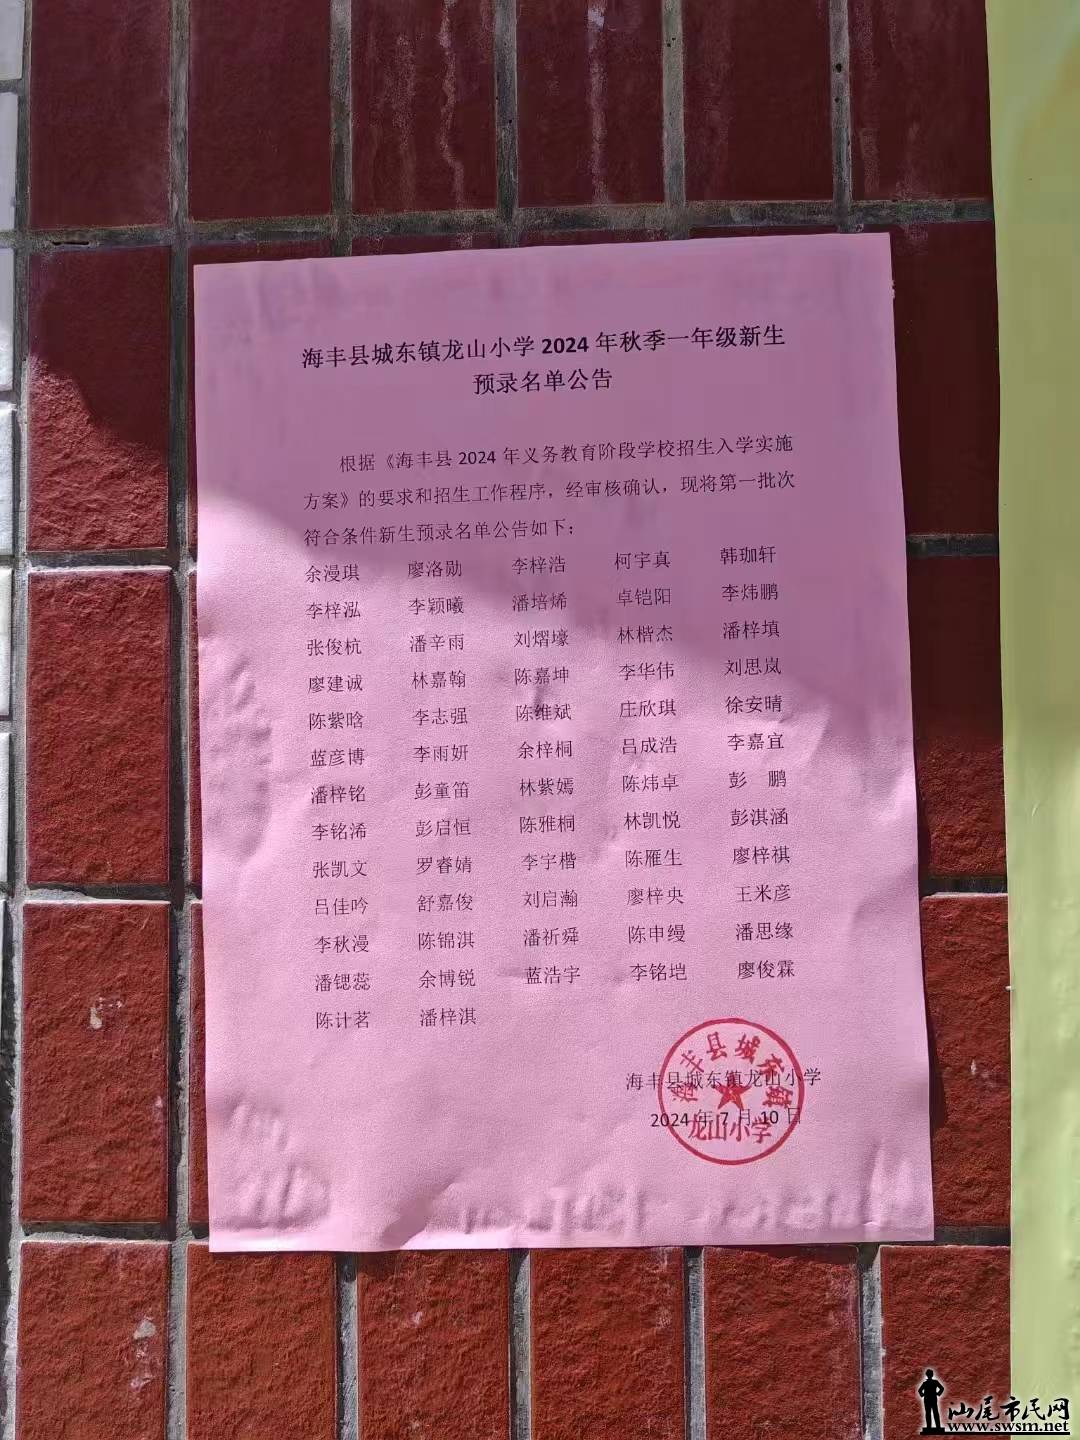 海丰县城东镇龙山小学 2024 年秋季一年级新生
预录名单公告
根据《海丰县 2024 年义务教育阶段学校招生入学实施
方案》的要求和招生工作程序，经审核确认，现将第一批次
符合条件新生预录名单公告如下：
余漫琪 廖洛勋 李梓浩 柯宇真 韩珈轩
李梓泓 李颖曦 潘培烯 卓铠阳 李炜鹏
张俊杭 潘辛雨 刘熠壕 林楷杰 潘梓填
廖建诚 林嘉翰 陈嘉坤 李华伟 刘思岚
陈紫晗 李志强 陈维斌 庄欣琪 徐安晴
蓝彦博 李雨妍 余梓桐 吕成浩 李嘉宜
潘梓铭 彭童笛 林紫嫣 陈炜卓 彭 鹏
李铭浠 彭启恒 陈雅桐 林凯悦 彭淇涵
张凯文 罗睿婧 李宇楷 陈雁生 廖梓祺
吕佳吟 舒嘉俊 刘启瀚 廖梓央 王米彦
李秋漫 陈锦淇 潘祈舜 陈申缦 潘思缘
潘锶蕊 余博锐 蓝浩宇 李铭垲 廖俊霖
陈计茗 潘梓淇
海丰县城东镇龙山小学
2024 年 7 月 10 日
海丰县城东镇
龙山小学
汕尾市民网
www.swsm.net